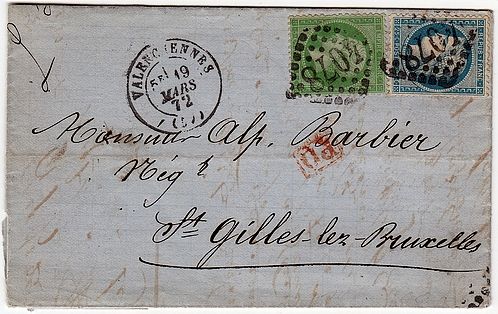 VALENCIENNES
19
MARS
72
(57)
4078
4078
PD
Monsieur Alp. Barbier
Nég t
St Gilles-lez-Bruxelles